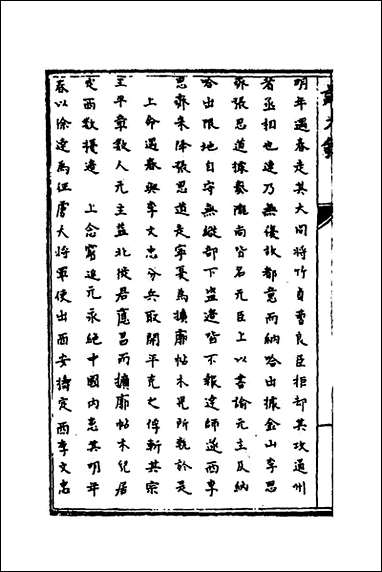 明年遇春走其大同將竹貞曹良臣拒却其攻通州
者丞相也速乃無侵故都意而納哈出據金山李思
齊張思道據秦隴尚皆名元臣上以書諭元主及納
哈出限地自守無縱部下盜邊皆不報達師遂西李
思齊來降張思道走寧夏為擴廓帖木兒所執於是
上命遇春與李文忠分兵取開平克之俘斬其宗
王平章數人元主益北徙居應昌而擴廓帖木兒居
定西數擾邊 上念窮追元永絕中國內患其明年
春以徐達為征虜大將軍使出西安擣定西李文忠